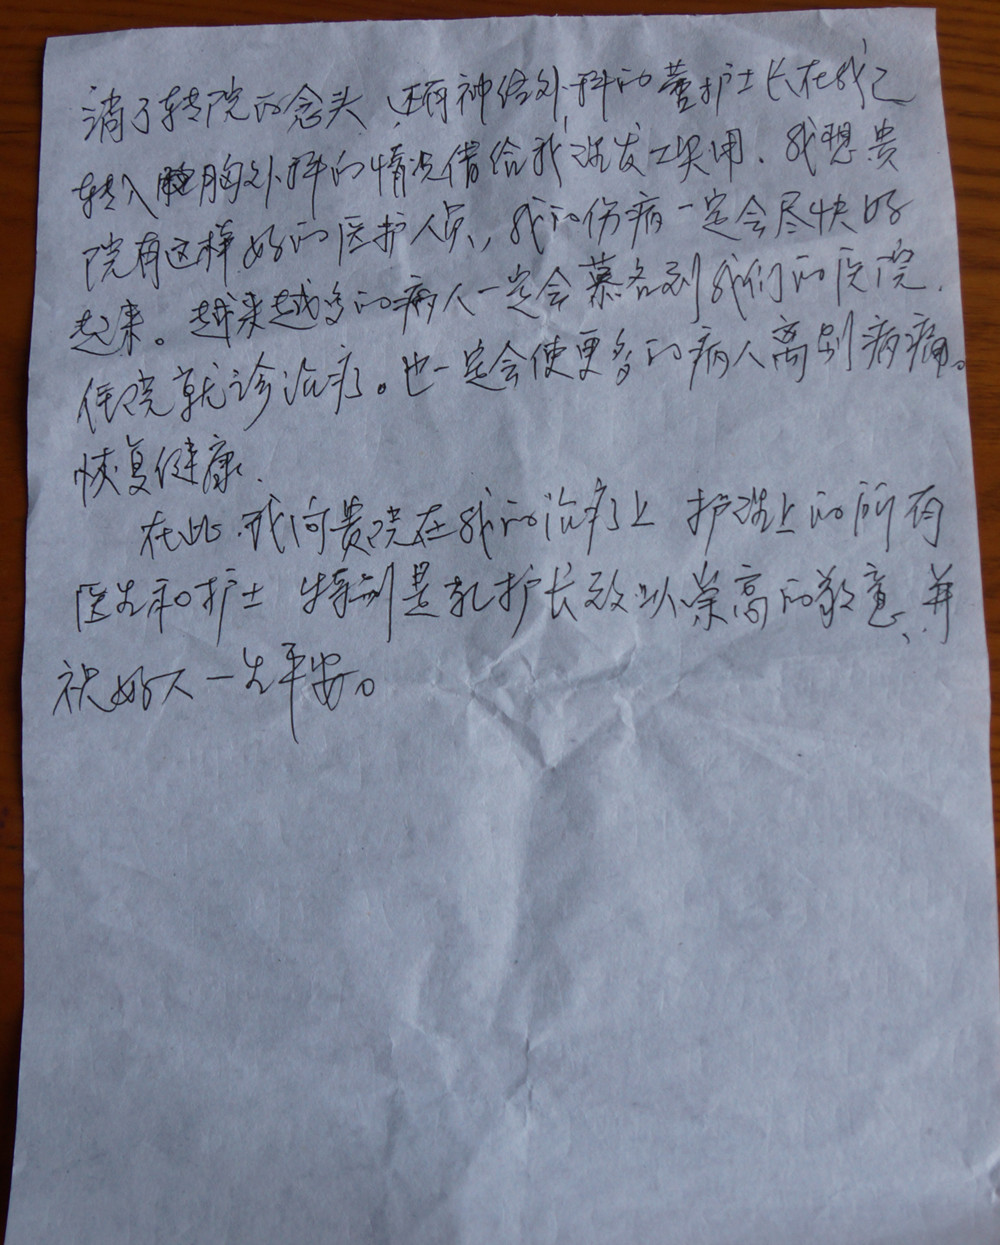 消了转院的念头 还有神经外科的董护士长在我已
转入胸外科的情况借给我理发工具用. 我想贵
院有这样好的医护人员, 我的伤病一定会尽快好
起来。越来越多的病人一定会慕名到我们的医院.
住院就诊治疗。也一定会使更多的病人离别病痛。
恢复健康.
在此.我向贵院在我的治疗上 护理上的所有
医生和护士 特别是孔护长致以崇高的敬意、并
祝好人一生平安。